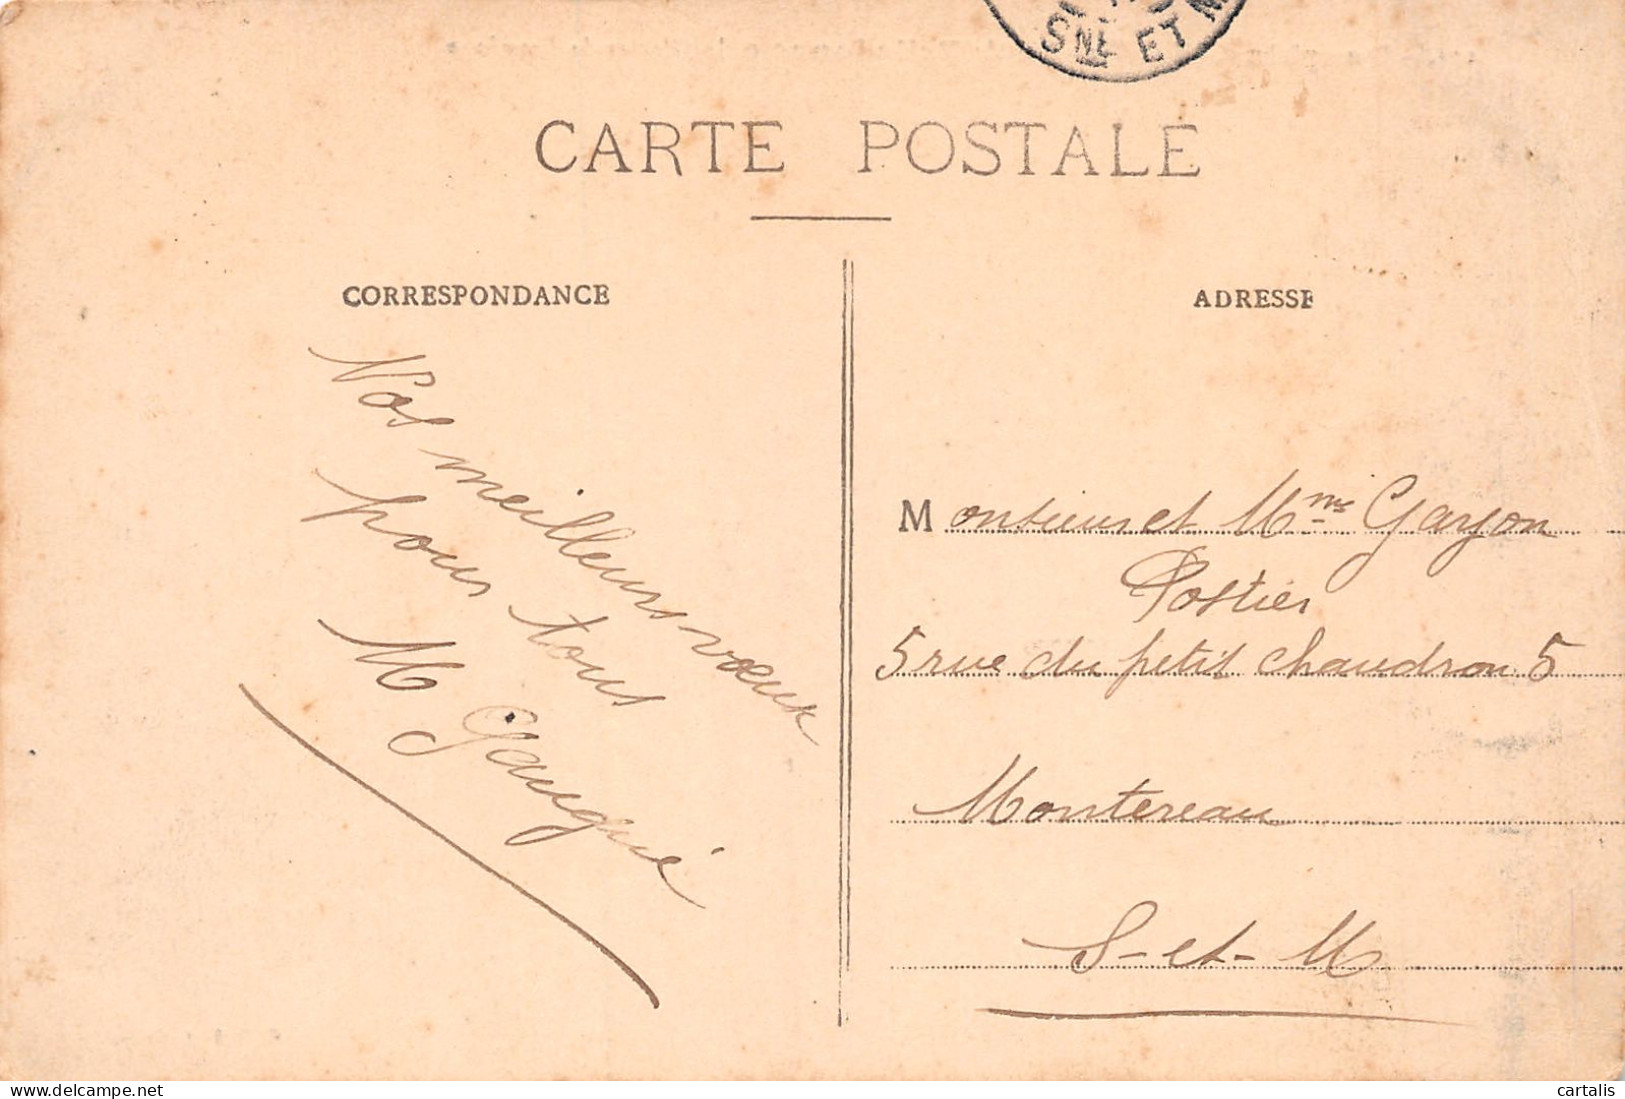 SNE ET M
CARTE POSTALE
CORRESPONDANCE
Nos meilleurs vœux
pour tous
M Gaugué
ADRESSE
Monsieur et Mme Garzon
Postier
5 rue du petit chaudron 5
Montereau
S-et-M
delcampe.net
cartalis